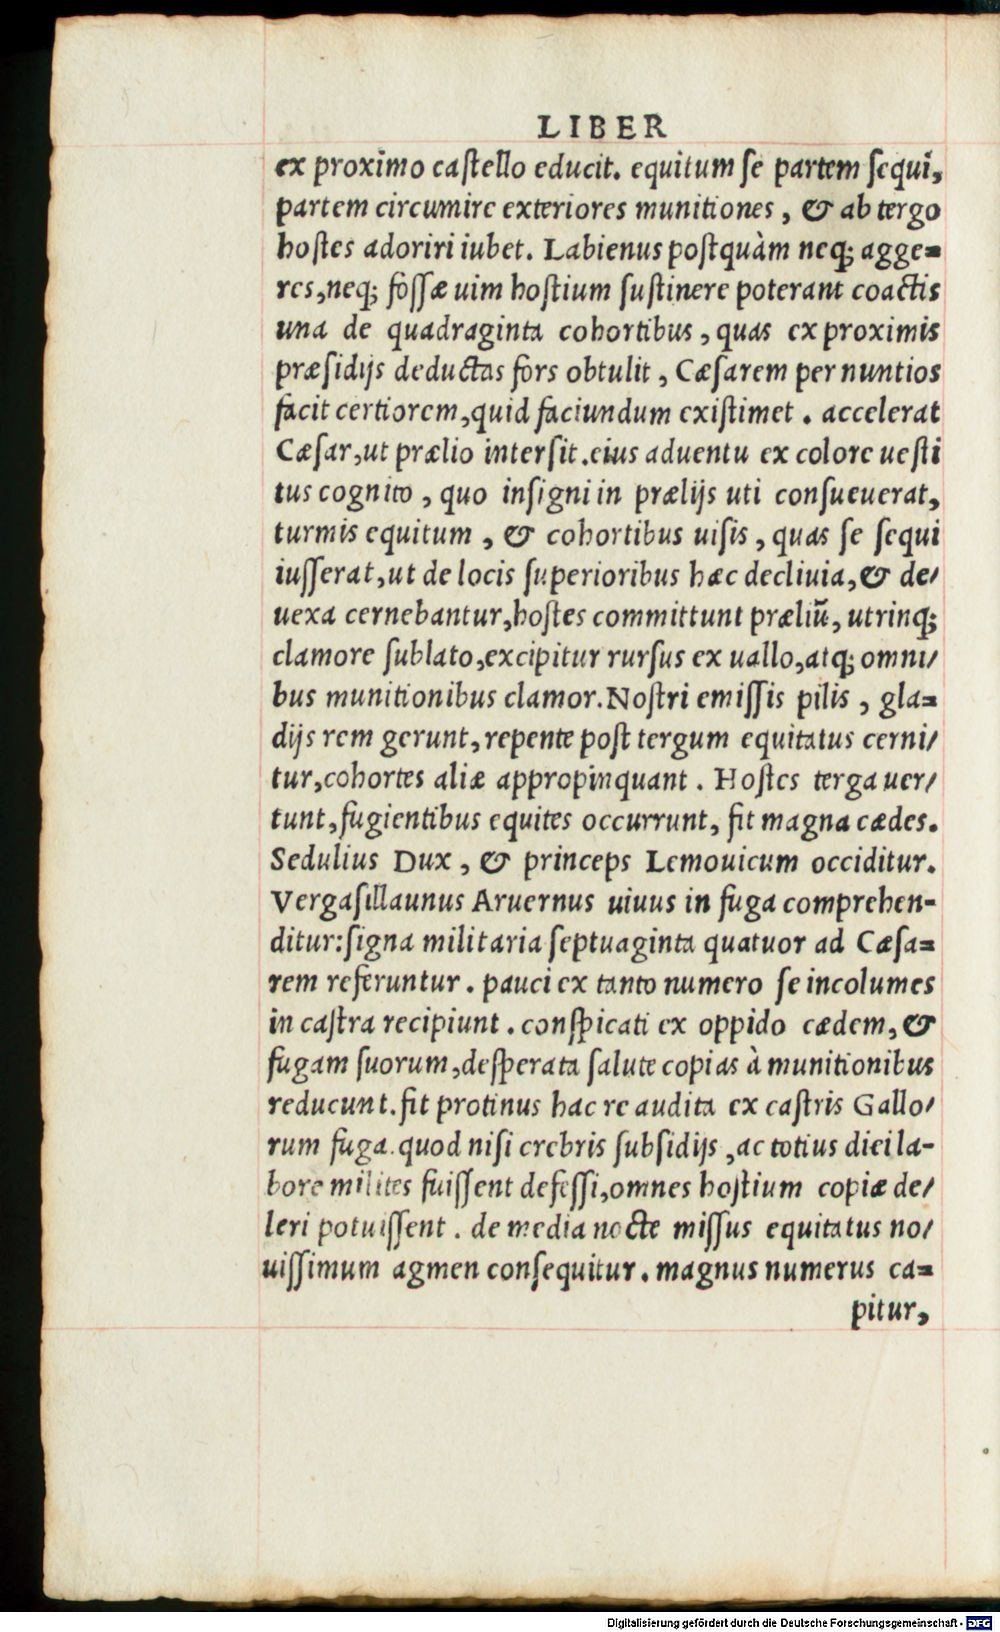 LIBER
ex proximo caſtello educit. equitum ſe partem ſequi,
partem circumire exteriores munitiones, & ab tergo
hoſtes adoriri iubet. Labienus poſtquàm neq; agge=
res, neq; foſſæ uim hoſtium ſuſtinere poterant coactis
una de quadraginta cohortibus, quas ex proximis
præſidijs deductas fors obtulit, Cæſarem per nuntios
facit certiorem, quid faciundum exiſtimet. accelerat
Cæſar, ut prælio interſit. eius aduentu ex colore ueſti
tus cognito, quo inſigni in prælijs uti conſueuerat,
turmis equitum, & cohortibus uiſis, quas ſe ſequi
iuſſerat, ut de locis ſuperioribus hæc decliuia, & de/
uexa cernebantur, hoſtes committunt præliū, utrinq;
clamore ſublato, excipitur rurſus ex uallo, atq; omni/
bus munitionibus clamor. Noſtri emiſſis pilis, gla=
dijs rem gerunt, repente poſt tergum equitatus cerni/
tur, cohortes aliæ appropinquant. Hoſtes terga uer/
tunt, fugientibus equites occurrunt, fit magna cædes.
Sedulius Dux, & princeps Lemouicum occiditur.
Vergaſillaunus Aruernus uiuus in fuga comprehen-
ditur: ſigna militaria ſeptuaginta quatuor ad Cæſa=
rem referuntur. pauci ex tanto numero ſe incolumes
in caſtra recipiunt. conſpicati ex oppido cædem, &
fugam ſuorum, deſperata ſalute copias à munitionibus
reducunt. fit protinus hac re audita ex caſtris Gallo/
rum fuga. quod niſi crebris ſubſidijs, ac totius diei la-
bore milites fuiſſent defeſſi, omnes hoſtium copiæ de/
leri potuiſſent. de media nocte miſſus equitatus no/
uiſſimum agmen conſequitur. magnus numerus ca=
pitur,
Digitalisierung gefördert durch die Deutsche Forschungsgemeinschaft - DFG